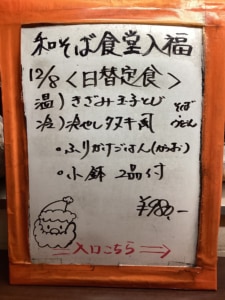 和そば食堂入福
12/8〈日替定食〉
温)きざみ玉子とじ そば
冷)冷やしタヌキ風 うどん
・ふりかけごはん(かつお)
・小鉢 2品付
¥980,-
入口こちら→